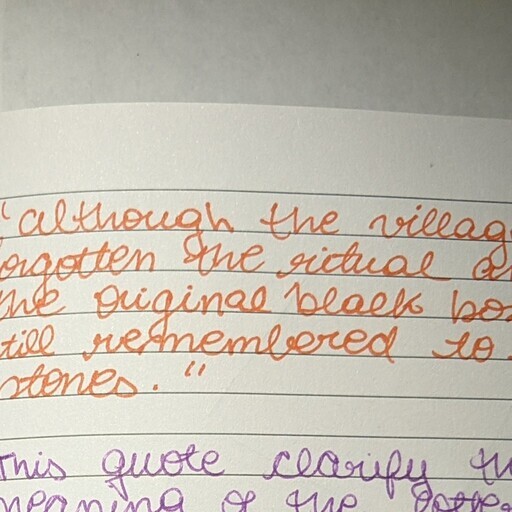 "although the villag
orgotten the ritual a
the original black bo
till remembered to
stones."
This quote clarify th
meaning of the